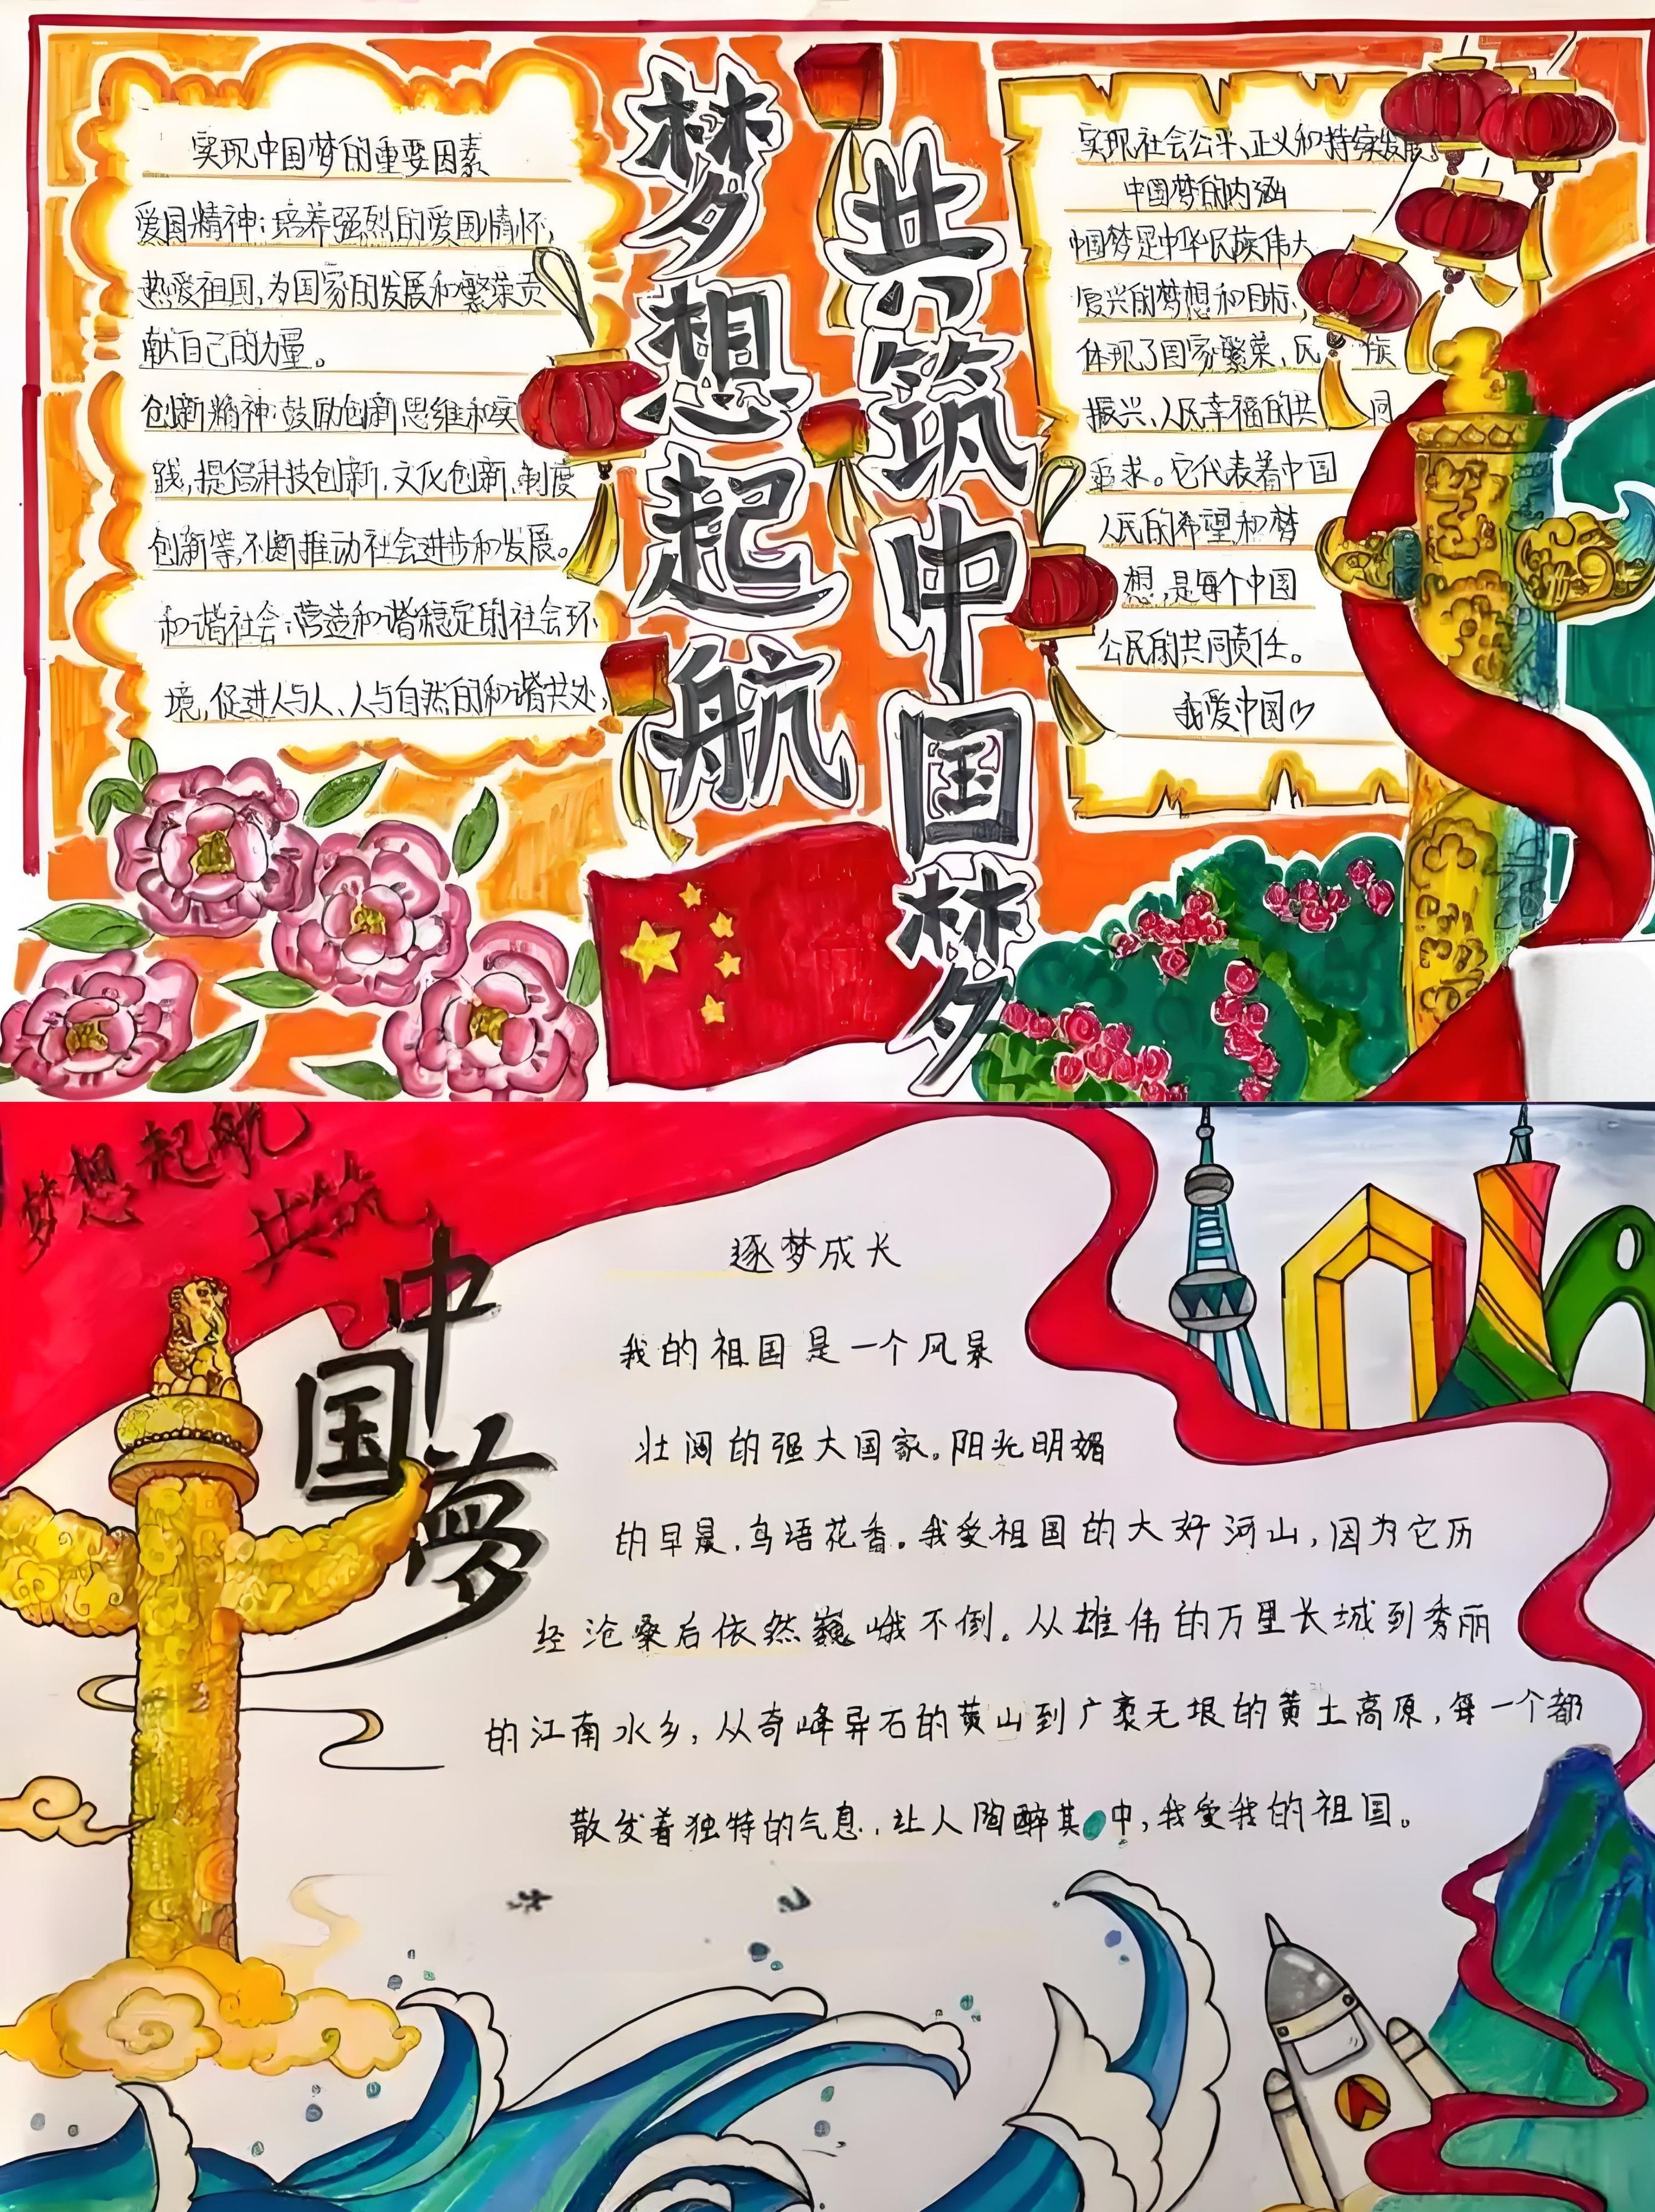 实现中国梦的重要因素
爱国精神：培养强烈的爱国情怀，
热爱祖国，为国家的发展和繁荣贡
献自己的力量。
创新精神：鼓励创新思维和实
践，提倡科技创新、文化创新、制度
创新等，不断推动社会进步和发展。
和谐社会：营造和谐稳定的社会环
境，促进人与人、人与自然的和谐共处，
梦想起航
共筑中国梦
实现社会公平、正义和持续发展！
中国梦的内涵
中国梦是中华民族伟大
复兴的梦想和目标，
体现了国家繁荣、民族
振兴、人民幸福的共同
追求。它代表着中国
人民的希望和梦
想，是每个中国
公民的共同责任。
我爱中国
梦想起航
共筑
中国夢
逐梦成长
我的祖国是一个风景
壮阔的强大国家。阳光明媚
的早晨，鸟语花香。我爱祖国的大好河山，因为它历
经沧桑后依然巍峨不倒。从雄伟的万里长城到秀丽
的江南水乡，从奇峰异石的黄山到广袤无垠的黄土高原，每一个都
散发着独特的气息，让人陶醉其中，我爱我的祖国。